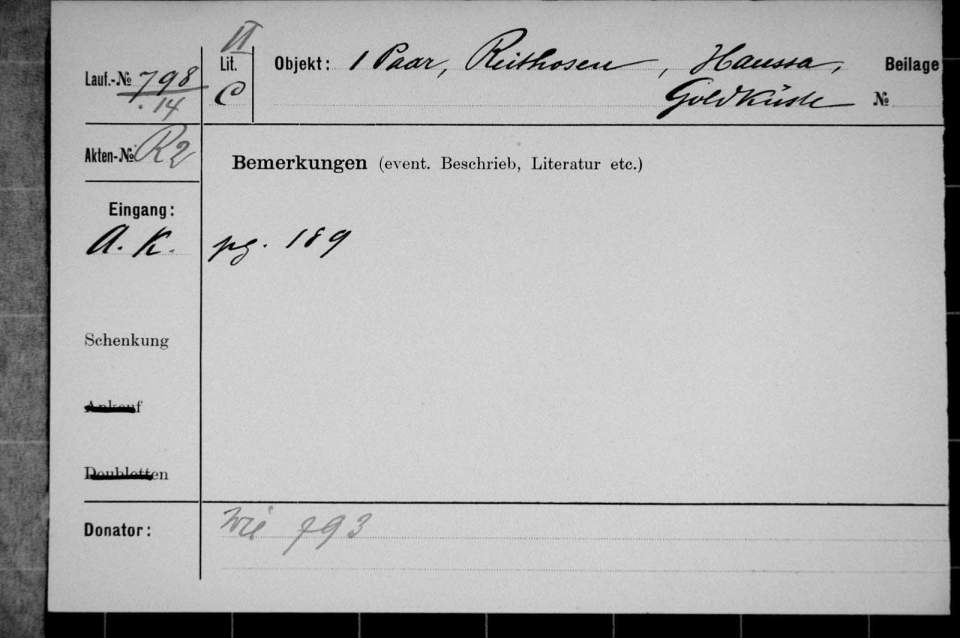 II
Lauf.-№ 798
.14
Lit. C
Objekt: 1 Paar, Reithosen, Haussa,
Goldküste
Beilage
№
Akten-№ R2
Bemerkungen (event. Beschrieb, Literatur etc.)
Eingang:
A. K. pg. 189
Schenkung
Ankauf
Doubletten
Donator: Wie 793